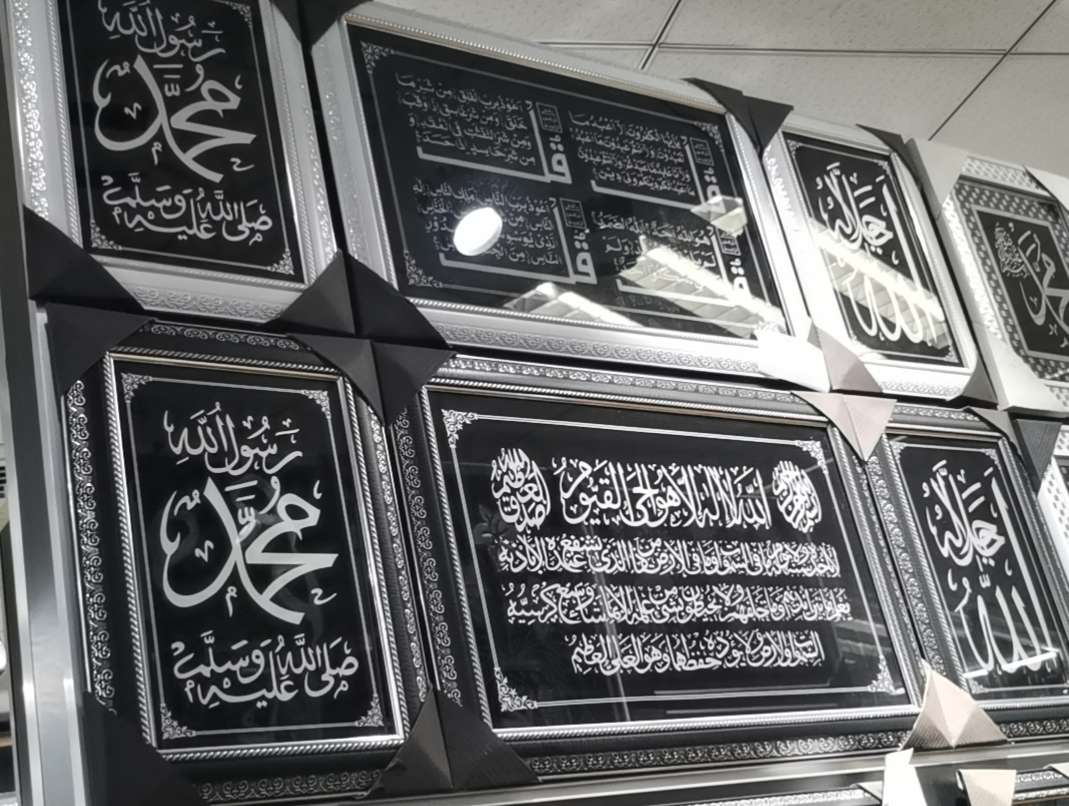 محمد
جل جلاله
الله
قل
يأيها الكفرون لا أعبد ما
تعبدون ولا أنتم عبدون ما أعبد
قل
أعوذ برب الفلق من شر ما
خلق ومن شر غاسق إذا وقب
ومن شر النفثت في العقد و
من شر حاسد إذا حسد
قل
هو الله أحد الله الصمد
ولم
قل
أعوذ برب الناس ملك الناس إله
الناس من شر
الذي يوسوس
الناس من
رسول الله
محمد
صلى الله عليه وسلم
جل جلاله
الله
الله لا إله إلا هو الحي القيوم
صدق الله العظيم
لا تأخذه سنة ولا نوم له ما في السموات وما في الأرض من ذا الذي يشفع عنده إلا بإذنه
يعلم ما بين أيديهم وما خلفهم ولا يحيطون بشيء من علمه إلا بما شاء وسع كرسيه
السموات والأرض ولا يؤده حفظهما وهو العلي العظيم
رسول الله
محمد
صلى الله عليه وسلم